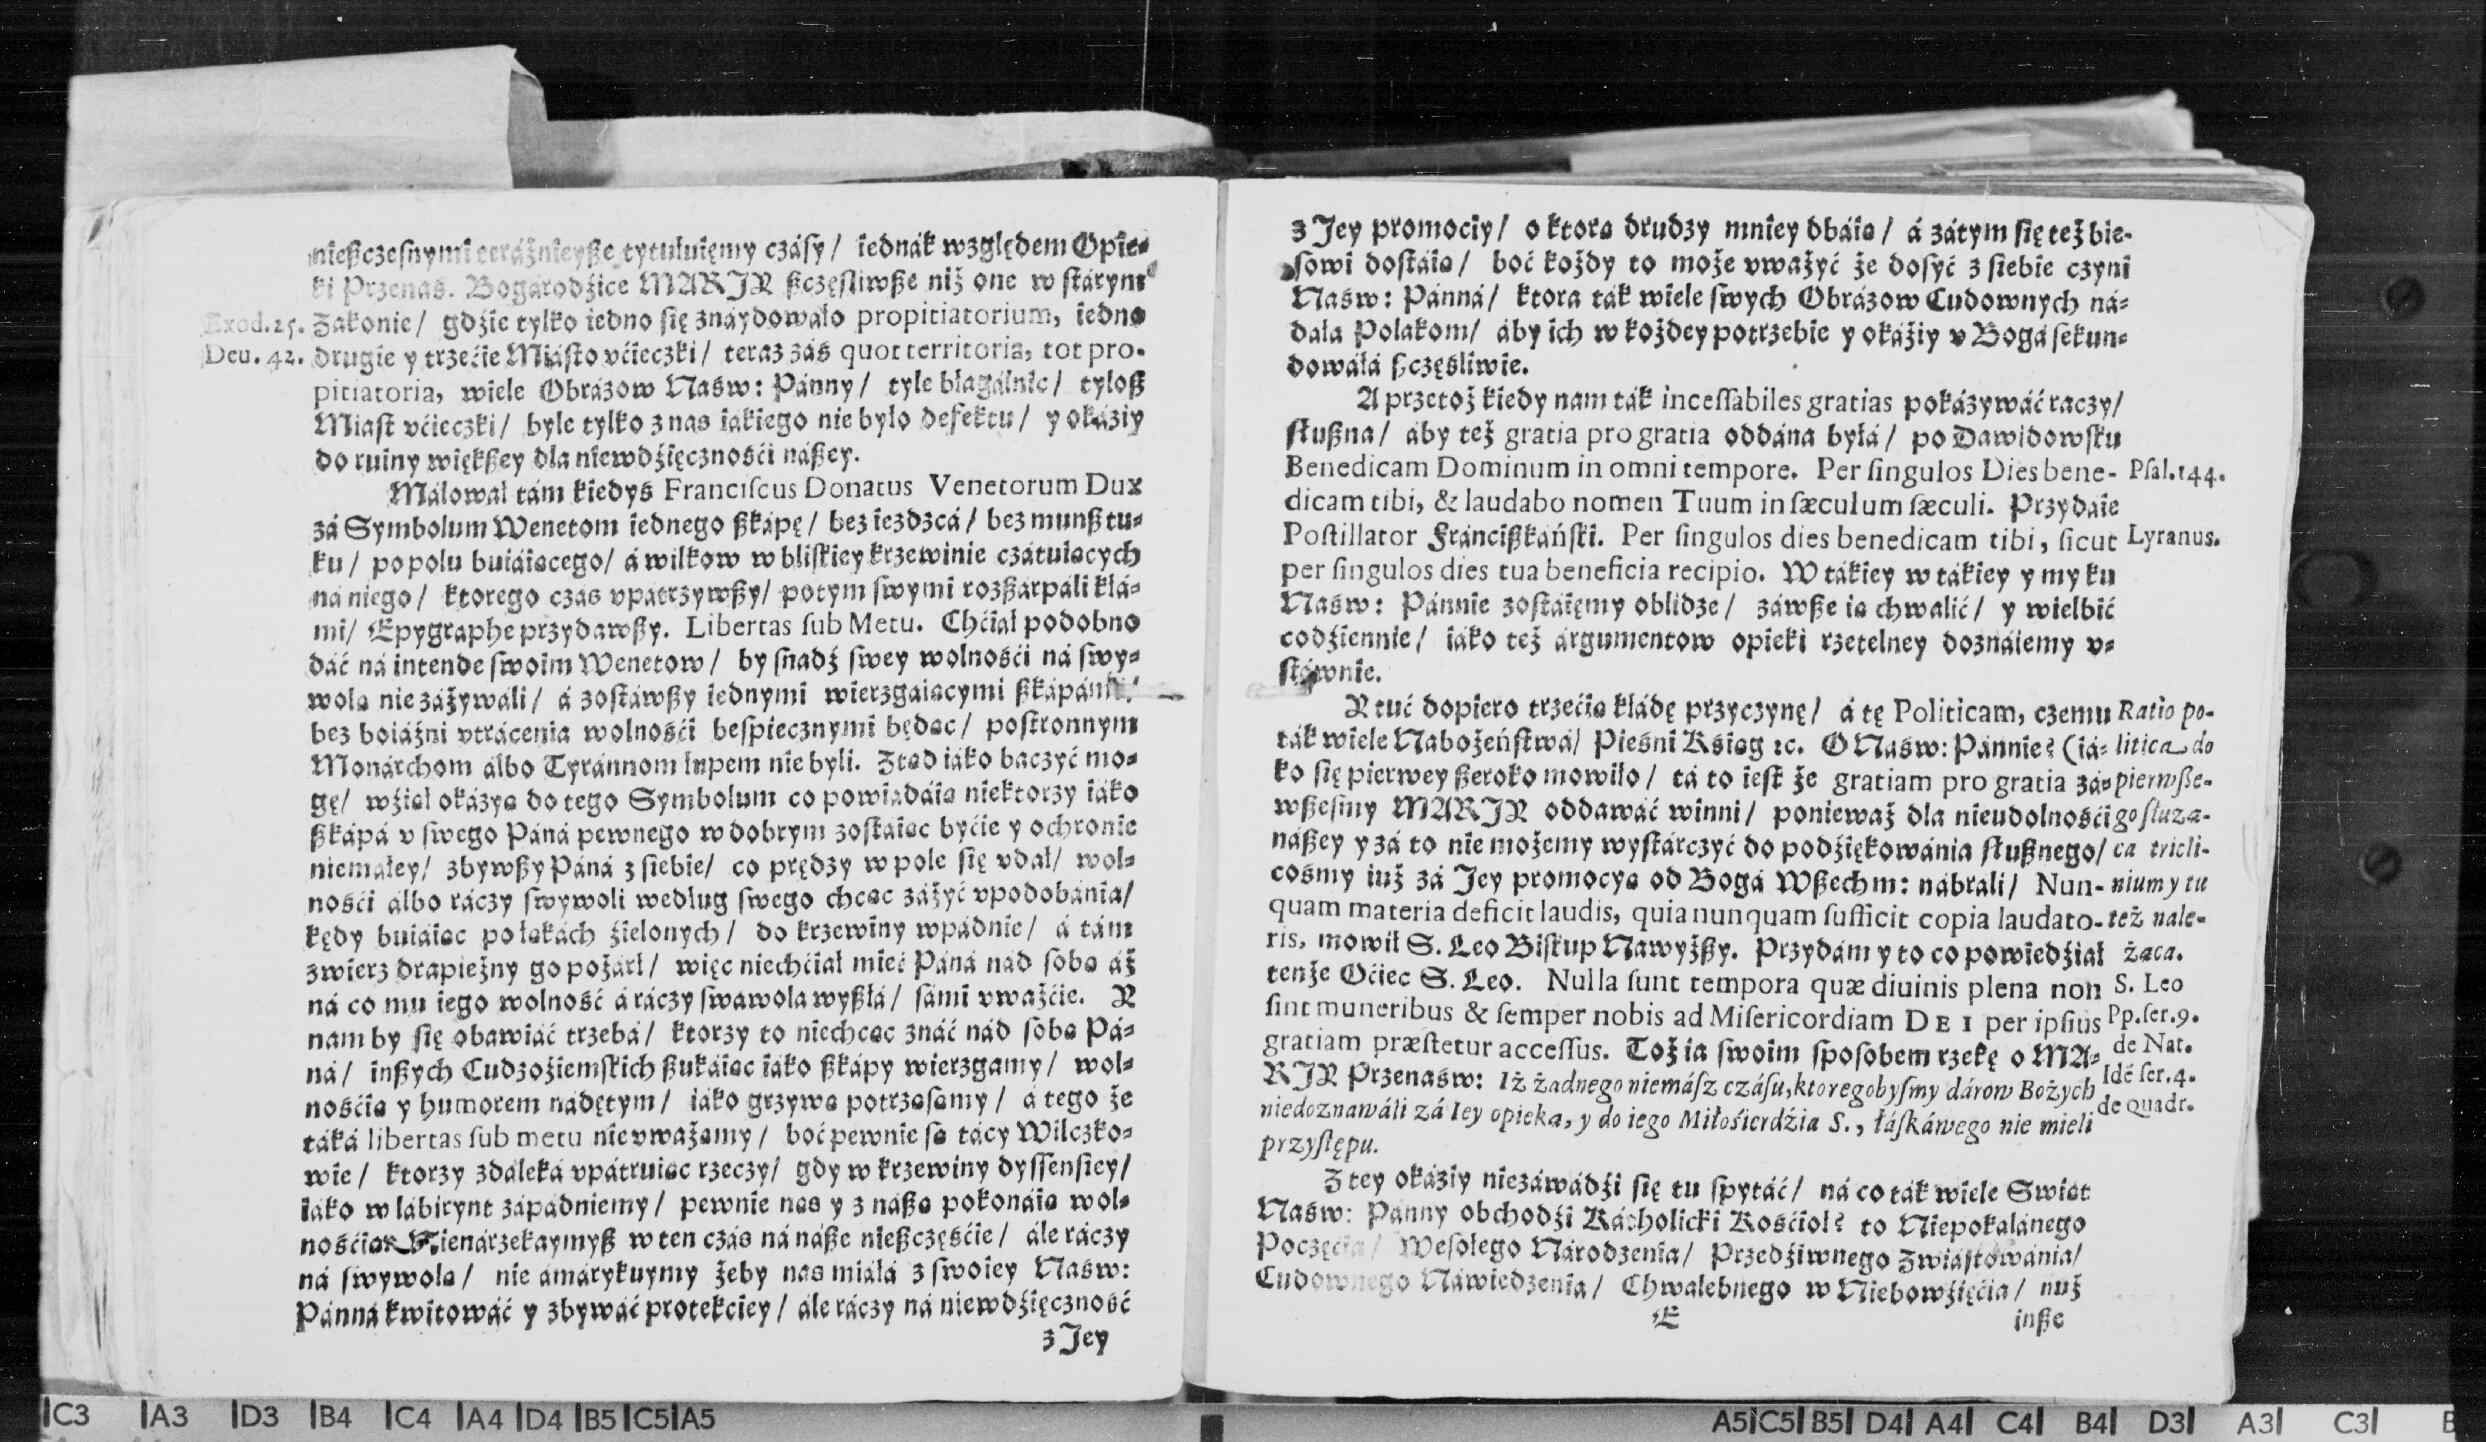 nießczesnymi teráźnieyße tytułuięmy czásy/ iednák względem Opie-
ki Przenaś. Bogárodźice MARJY ßczęśliwße niż one w stárym
Exod. 25. Zakonie/ gdźie tylko iedno się znáydowáło propitiatorium, iedno
Deu. 42. drugie y trzećie Miásto vćieczki/ teraz záś quot territoria, tot pro-
pitiatoria, wiele Obrázow Naśw: Pánny/ tyle błagálnic/ tyloß
Miast vćieczki/ byle tylko z nas iákiego nie było defektu/ y okáziy
do ruiny większey dla niewdźięcznośći náßey.
Málował tám kiedyś Franciſcus Donatus Venetorum Dux
zá Symbolum Wenetom iednego ßkápę/ bez iezdzcá/ bez munßtu-
ku/ po polu buiáiącego/ á wilkow w bliskiey krzewinie czátuiących
ná niego/ ktorego czás vpátrzywßy/ potym swymi rozßárpáli kłá-
mi/ Epygraphe przydawßy. Libertas ſub Metu. Chćiał podobno
dáć ná intende swoim Wenetow/ by snadź swey wolnośći ná swy-
wolą nie záżywáli/ á zostáwßy iednymi wierzgáiącymi ßkápámi/
bez boiáźni vtrácenia wolnośći bespiecznymi będąc/ postronnym
Monárchom álbo Tyránnom łupem nie byli. Ztąd iáko baczyć mo-
gę/ wźiął okázyą do tego Symbolum co powiádáią niektorzy iáko
ßkápá v swego Páná pewnego w dobrym zostáiąc byćie y ochronie
niemáłey/ zbywßy Páná z siebie/ co prędzy w pole się vdał/ wol-
nośći álbo ráczy swywoli według swego chcąc záżyć vpodobánia/
kędy buiáiąc po łąkách źielonych/ do krzewiny wpádnie/ á tám
zwierz drapieżny go pożárł/ więc niechćiał mieć Páná nád sobą áż
ná co mu iego wolność á ráczy swawola wyßłá/ sámi vważćie. Y
nam by się obawiáć trzebá/ ktorzy to niechcąc znáć nád sobą Pá-
ná/ inßych Cudzoźiemskich ßukáiąc iáko ßkápy wierzgamy/ wol-
nośćią y humorem nádętym/ iáko grzywą potrząsamy/ á tego że
táká libertas ſub metu nie vważamy/ boć pewnie są tácy Wilczko-
wie/ ktorzy zdáleká vpátruiąc rzeczy/ gdy w krzewiny dyssensiey/
iáko w lábirynt zápádniemy/ pewnie nas y z náßą pokonáią wol-
nośćią. Nienárzekaymyß w ten czás ná náße nießczęśćie/ ále ráczy
ná swywolą/ nie ámárykuymy żeby nas miáłá z swoiey Naśw:
Pánná kwitowáć y zbywáć protekciey/ ále ráczy ná niewdźięczność
z Jey
z Jey promociy/ o ktorą drudzy mniey dbáią/ á zátym się też bie-
sowi dostáią/ boć kożdy to może vważyć że dosyć z siebie czyni
Naśw: Pánná/ ktora ták wiele swych Obrázow Cudownych ná-
dáła Polakom/ áby ich w kożdey potrzebie y okáżiy v Bogá sekun-
dowáłá ßczęśliwie.
A przetoż kiedy nam ták inceſſabiles gratias pokázywáć raczy/
słußna/ áby też gratia pro gratia oddána byłá/ po Dawidowsku
Benedicam Dominum in omni tempore. Per ſingulos Dies bene- Pſal. 144.
dicam tibi, & laudabo nomen Tuum in ſæculum ſæculi. Przydáie
Poſtillator Fráncißkáński. Per ſingulos dies benedicam tibi, ſicut Lyranus.
per ſingulos dies tua beneficia recipio. W tákiey w tákiey y my ku
Naśw: Pánnie zostáięmy oblidze/ záwße ią chwalić/ y wielbić
codźiennie/ iáko też árgumentow opieki rzetelney doznáiemy v-
stáwnie.
Y tuć dopiero trzećią kłádę przyczynę/ á tę Politicam, czemu Ratio po-
ták wiele Nabożeństwá/ Pieśni Kśiąg ꝛc. O Naśw: Pánnie? (iá- litica do
ko się pierwey ßeroko mowiło/ tá to iest że gratiam pro gratia zá- pierwſze-
wßesmy MARJY oddawáć winni/ ponieważ dla nieudolnośći go ſłuzą-
náßey y zá to nie możemy wystárczyć do podźiękowánia słußnego/ ca tricli-
cosmy iuż zá Jey promocyą od Bogá Wßechm: nábráli/ Nun- nium y tu
quam materia deficit laudis, quia nunquam ſufficit copia laudato- też nale-
ris, mowił S. Leo Biskup Nawyżßy. Przydám y to co powiedźiał żąca.
tenże Oćiec S. Leo. Nulla ſunt tempora quæ diuinis plena non S. Leo
ſint muneribus & ſemper nobis ad Miſericordiam DEI per ipſius Pp. ſer. 9.
gratiam præſtetur acceſſus. Toż ia swoim sposobem rzekę o MA- de Nat.
RJY Przenaśw: Iż żadnego niemáſz czáſu, ktoregobyſmy dárow Bożych Idē ſer. 4.
niedoznawáli zá Iey opieką, y do iego Miłośierdźia S., łáſkáwego nie mieli de Quadr.
przyſtępu.
Z tey okáziy niezáwádźi się tu spytáć/ ná co ták wiele Swiąt
Naśw: Pánny obchodźi Kátholicki Kośćioł? to Niepokalánego
Poczęćia/ Wesołego Národzenia/ Przedźiwnego Zwiástowánia/
Cudownego Náwiedzenia/ Chwalebnego w Niebowźięćia/ nuż
E inße
C3 A3 D3 B4 C4 A4 D4 B5 C5 A5
A5 C5 B5 D4 A4 C4 B4 D3 A3 C3 B